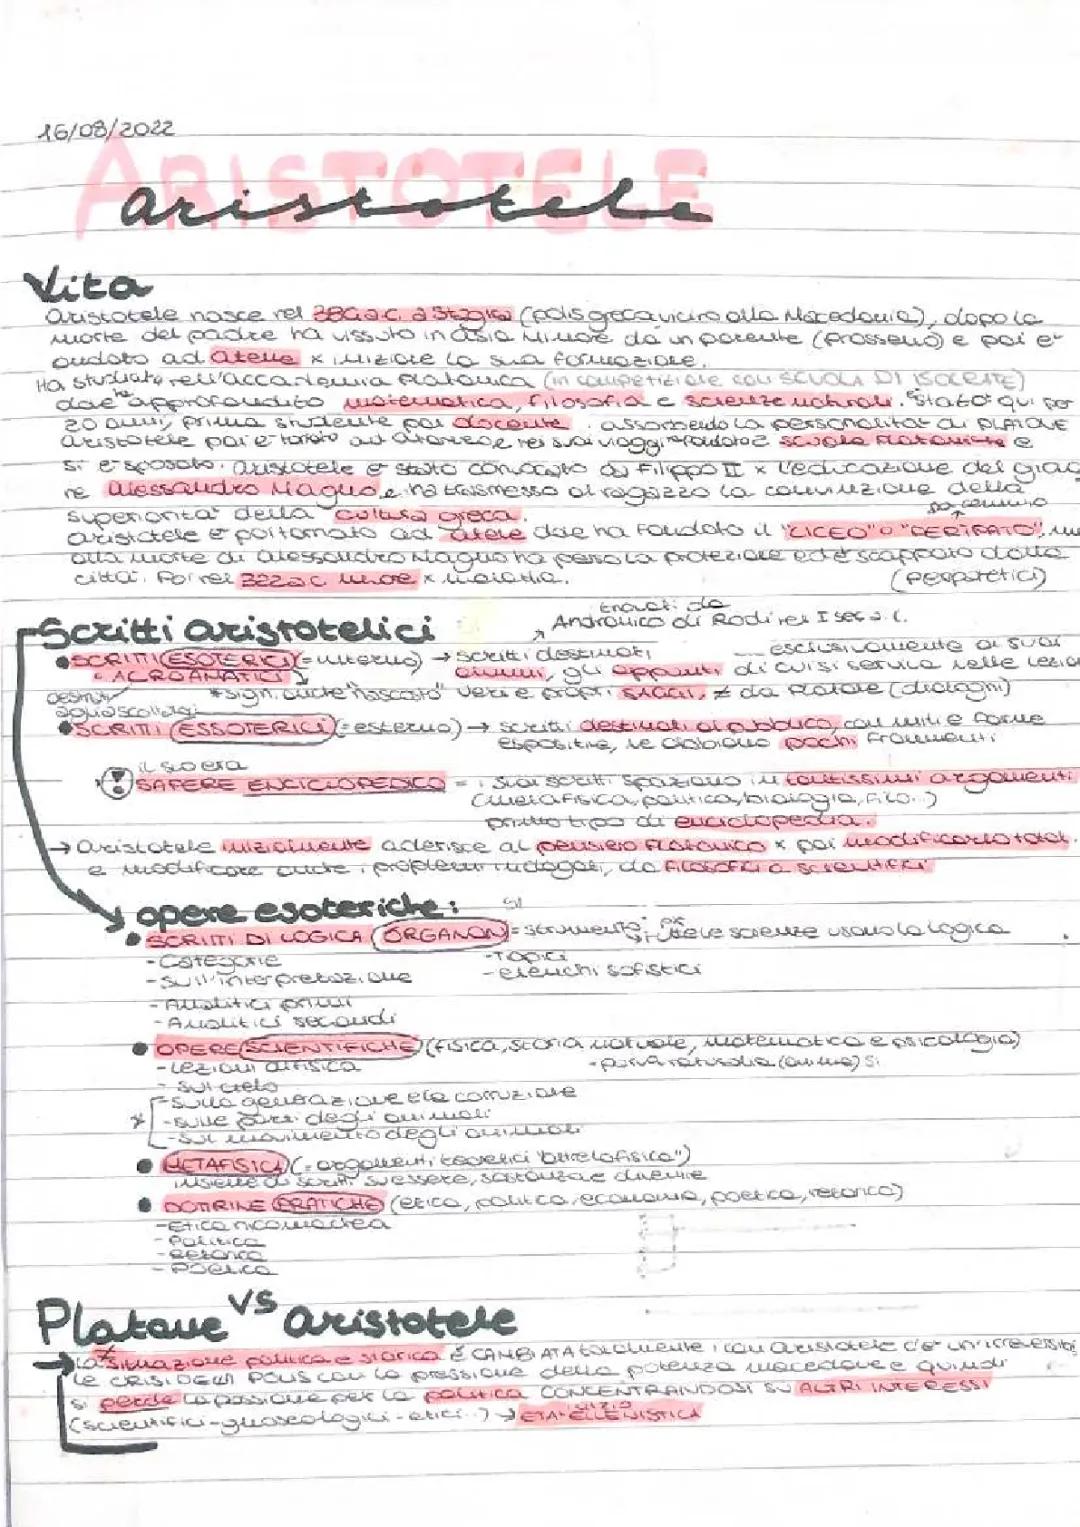 16/08/2022
ARISTOTELE
aristotele
Vita
Aristotele nasce nel 384a.c. a Stagira (polis greca vicino alla Macedonia), dopo la
morte del padre ha vissuto in Asia Minore da un parente (Prosseno) e poi e'
andato ad Atene x iniziare la sua formazione.
Ha studiato nell'accademia platonica (in competizione con SCUOLA DI ISOCRATE)
dove ha approfondito matematica, filosofia e scienze naturali. Stato qui per
20 anni, prima studente poi docente. assorbendo la personalità di PLATONE
Aristotele poi e' tornato ad e nei suoi viaggi ha fondato 2 scuole Platoniche e
si e' sposato. Aristotele e' stato convocato da Filippo II x l'educazione del giova
ne Alessandro Magno e ha trasmesso al ragazzo la convinzione della
superiorita' della cultura greca.
Aristotele e' poi tornato ad Atene dove ha fondato il "LICEO" o "PERIPATO",
alla morte di Alessandro Magno ha perso la protezione ed è scappato dalla
città. Poi nel 322a.c muore x malattia. (peripatetici)
Scritti aristotelici
trovati da
Andronico di Rodi nel I sec a.C.
• SCRITTI (ESOTERICI) (= interno) → scritti destinati esclusivamente ai suoi
• ACROAMATICI alunni, gli appunti di cui si serviva nelle lezio
destinati
agli ascoltatori
*sign. anche "nascosto" veri e propri SAGGI, ≠ da Platone (dialoghi)
• SCRITTI (ESSOTERICI) (= esterno) → scritti destinati al pubblico, con miti e forme
espositive, ne abbiamo pochi frammenti
il suo era
! SAPERE ENCICLOPEDICO = i suoi scritti spaziano in tantissimi argomenti
(metafisica, politica, biologia, filo...)
primo tipo di enciclopedia.
→ Aristotele inizialmente aderisce al pensiero Platonico x poi modificarlo total.
e modificare anche i problemi indagati, da filosofici a scientifici
opere esoteriche:
• SCRITTI DI LOGICA (ORGANON) = strumento, tutte le scienze usano la logica
- Categorie
- Topici
- Sull'interpretazione
- elenchi sofistici
- Analitici primi
- Analitici secondi
• OPERE (SCIENTIFICHE) (fisica, storia naturale, matematica e psicologia)
- Lezioni di fisica
- parva naturalia (anima)
- Sul cielo
- Sulla generazione e la corruzione
* - sulle parti degli animali
- Sul movimento degli animali
• METAFISICA (= argomenti teoretici "oltre la fisica")
insieme di scritti su essere, sostanza e divenire
• DOTTRINE (PRATICHE) (etica, politica, economia, poetica, retorica)
- Etica nicomachea
- Politica
- Retorica
- Poetica
Platone vs aristotele
→ La situazione politica e storica È CAMBIATA totalmente, con Aristotele c'e' un'irreversibi
le CRISI DELLA POLIS con la pressione della potenza macedone e quindi
si perde la passione per la politica CONCENTRANDOSI SU ALTRI INTERESSI
(scientifici-gnoseologici-etici..) → inizio ETA' ELLENISTICA